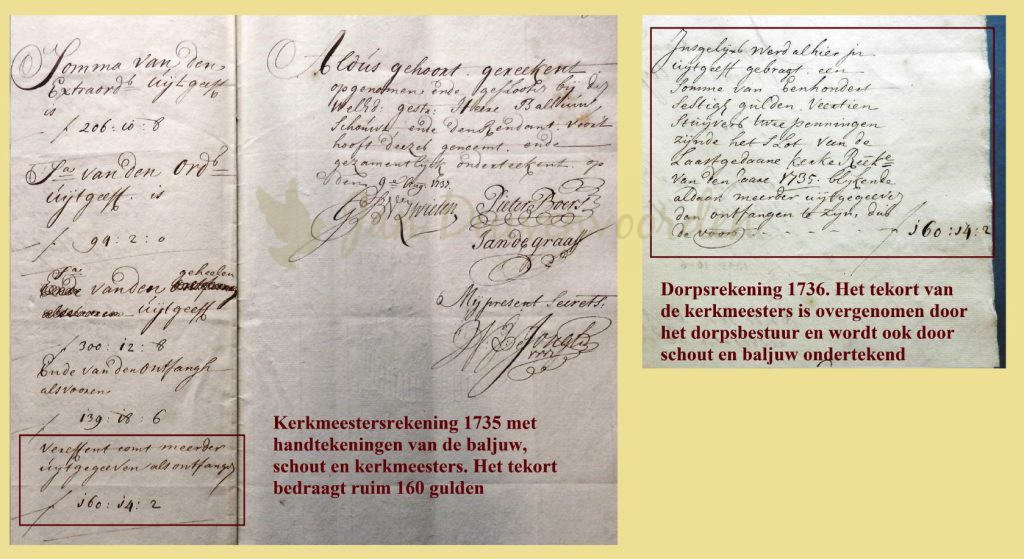 Somma van den
Extraord.s uijtgeeff
is
f 206:10:8
S.a van den Ord.s
uijtgeeff. is
f 94:2:0
S.a
vanden geheelen
uijtgeeff
f 300:12:8
Ende van den Ontfangh
als vooren
f 139:18:6
Vereffent comt meerder
uijtgegeeven als ontfange
f 160:14:2
Aldus gehoort. gereekent
opgenomen ende geslooten bij de
Welhd: gestr: Heere Balliuw,
Schout, ende den Rendant. voor't
hooft deezes genoemt. ende
gezamentlijck ondertekent. op
den 9.e Aug. 1737.
Zwieten Pieter Boers
Jan de graaff
Mij present Secrets.
W Jongh
Kerkmeestersrekening 1735 met
handtekeningen van de baljuw,
schout en kerkmeesters. Het tekort
bedraagt ruim 160 gulden
Insgelijx werd alhier in
uijtgeeff gebragt een
Somme van Eenhondert
Sestigh gulden Veertien
Stuijvers twee penningen
zijnde het Slot van de
Laastgedaane kerke Reeke
van den Jaare 1735. blijkende
aldaar meerder uijtgegeeve
dan ontfangen te zijn, dus
de voors - - - - - f 160:14:2
Dorpsrekening 1736. Het tekort van
de kerkmeesters is overgenomen door
het dorpsbestuur en wordt ook door
schout en baljuw ondertekend